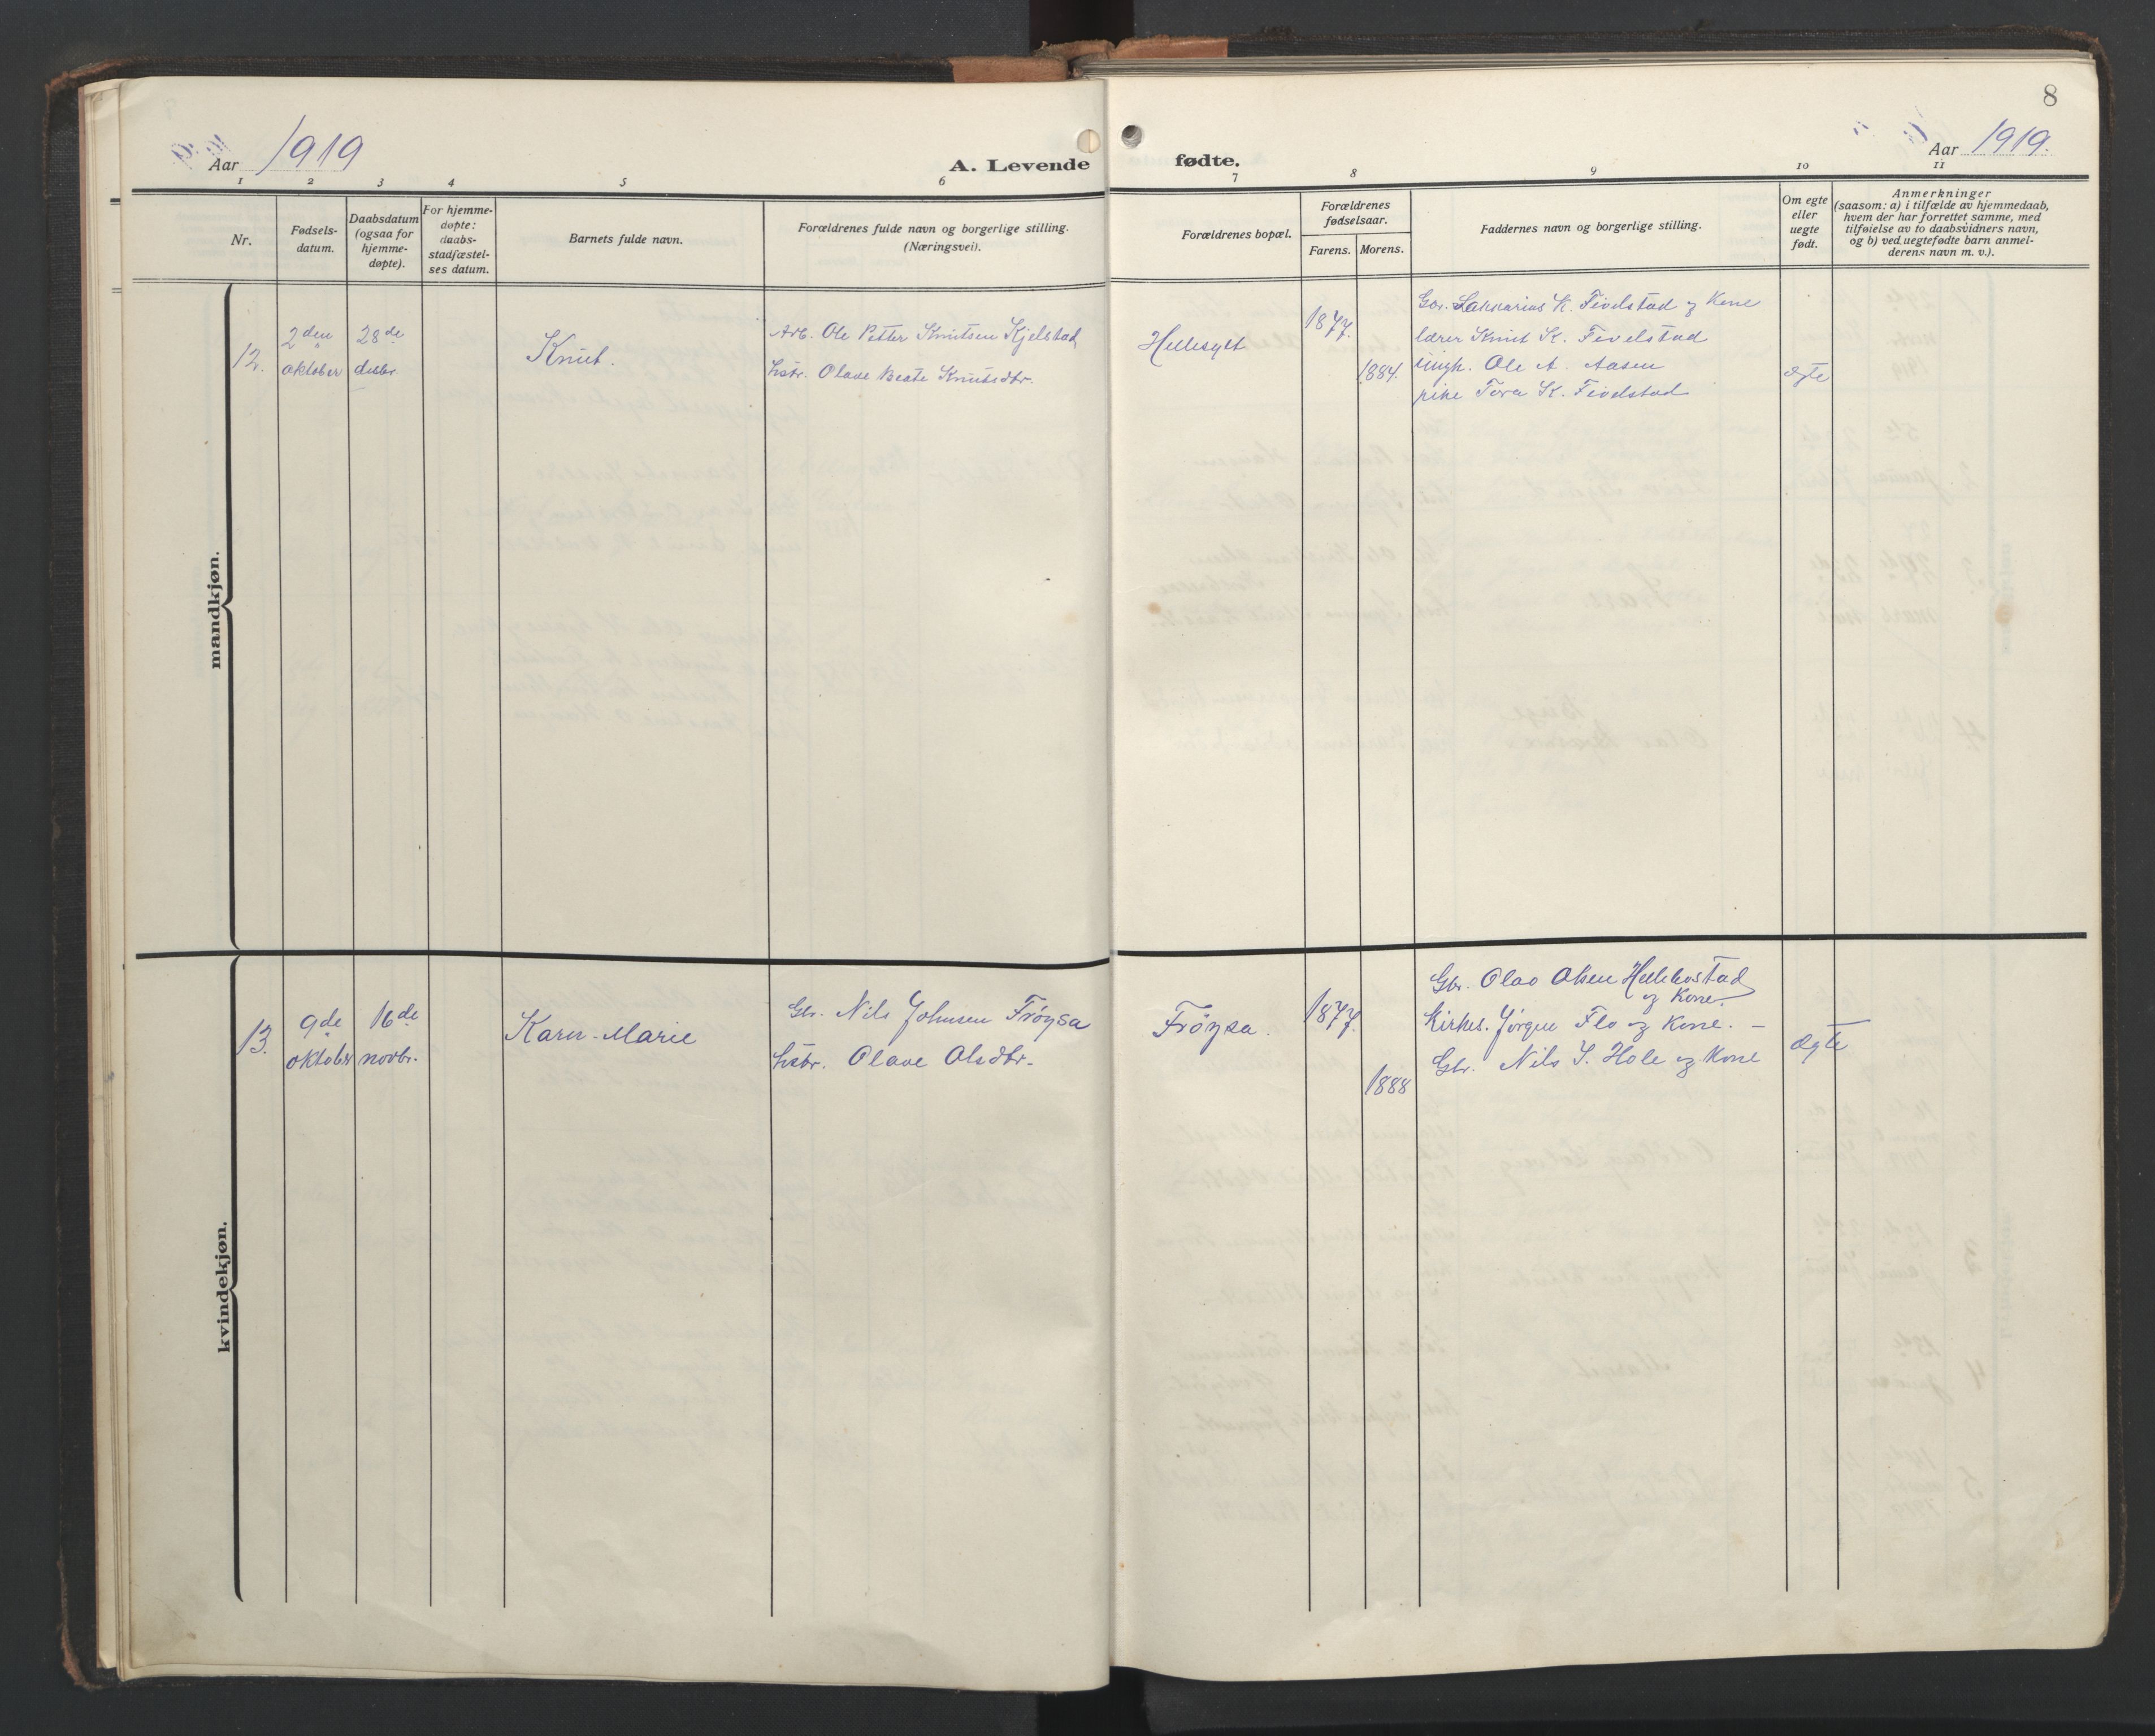 8
Aar 1919
A. Levende fødte.
Aar 1919.
1 2 3 4 5 6 7 8 9 10 11
Nr.
Fødsels-
datum.
Daabsdatum
(ogsaa for
hjemme-
døpte).
For hjemme-
døpte:
daabs-
stadfæstel-
ses datum.
Barnets fulde navn.
Forældrenes fulde navn og borgerlige stilling.
(Næringsvei).
Forældrenes bopæl.
Forældrenes
fødselsaar.
Farens. Morens.
Faddernes navn og borgerlige stilling.
Om egte
eller
uegte
født.
Anmerkninger
(saasom: a) i tilfælde av hjemmedaab,
hvem der har forrettet samme, med
tilføielse av to daabsvidners navn,
og b) ved uegtefødte barn anmel-
derens navn m. v.).
mandkjøn.
12.
2den
oktober
28de
desbr.
Knut.
Arb. Ole Petter Knutsen Kjelstad
hstr. Olave Beate Knutsdtr.
Hellesylt
1877.
1884.
Gbr. Sakkarias K. Fivelstad og Kone
lærer Knut K. Fivelstad
ungk. Ole A. Aasen
pike Tora K. Fivelstad
ægte
kvindekjøn.
13.
9de
oktober
16de
novbr.
Karen-Marie
Gbr. Nils Johnsen Frøysa
hstr. Olave Olsdtr.
Frøysa.
1877.
1888
Gbr. Olav Olsen Hellebostad
og Kone.
Kirkes. Jørgen Flo og Kone. –
Gbr. Nils I. Hole og Kone
ægte